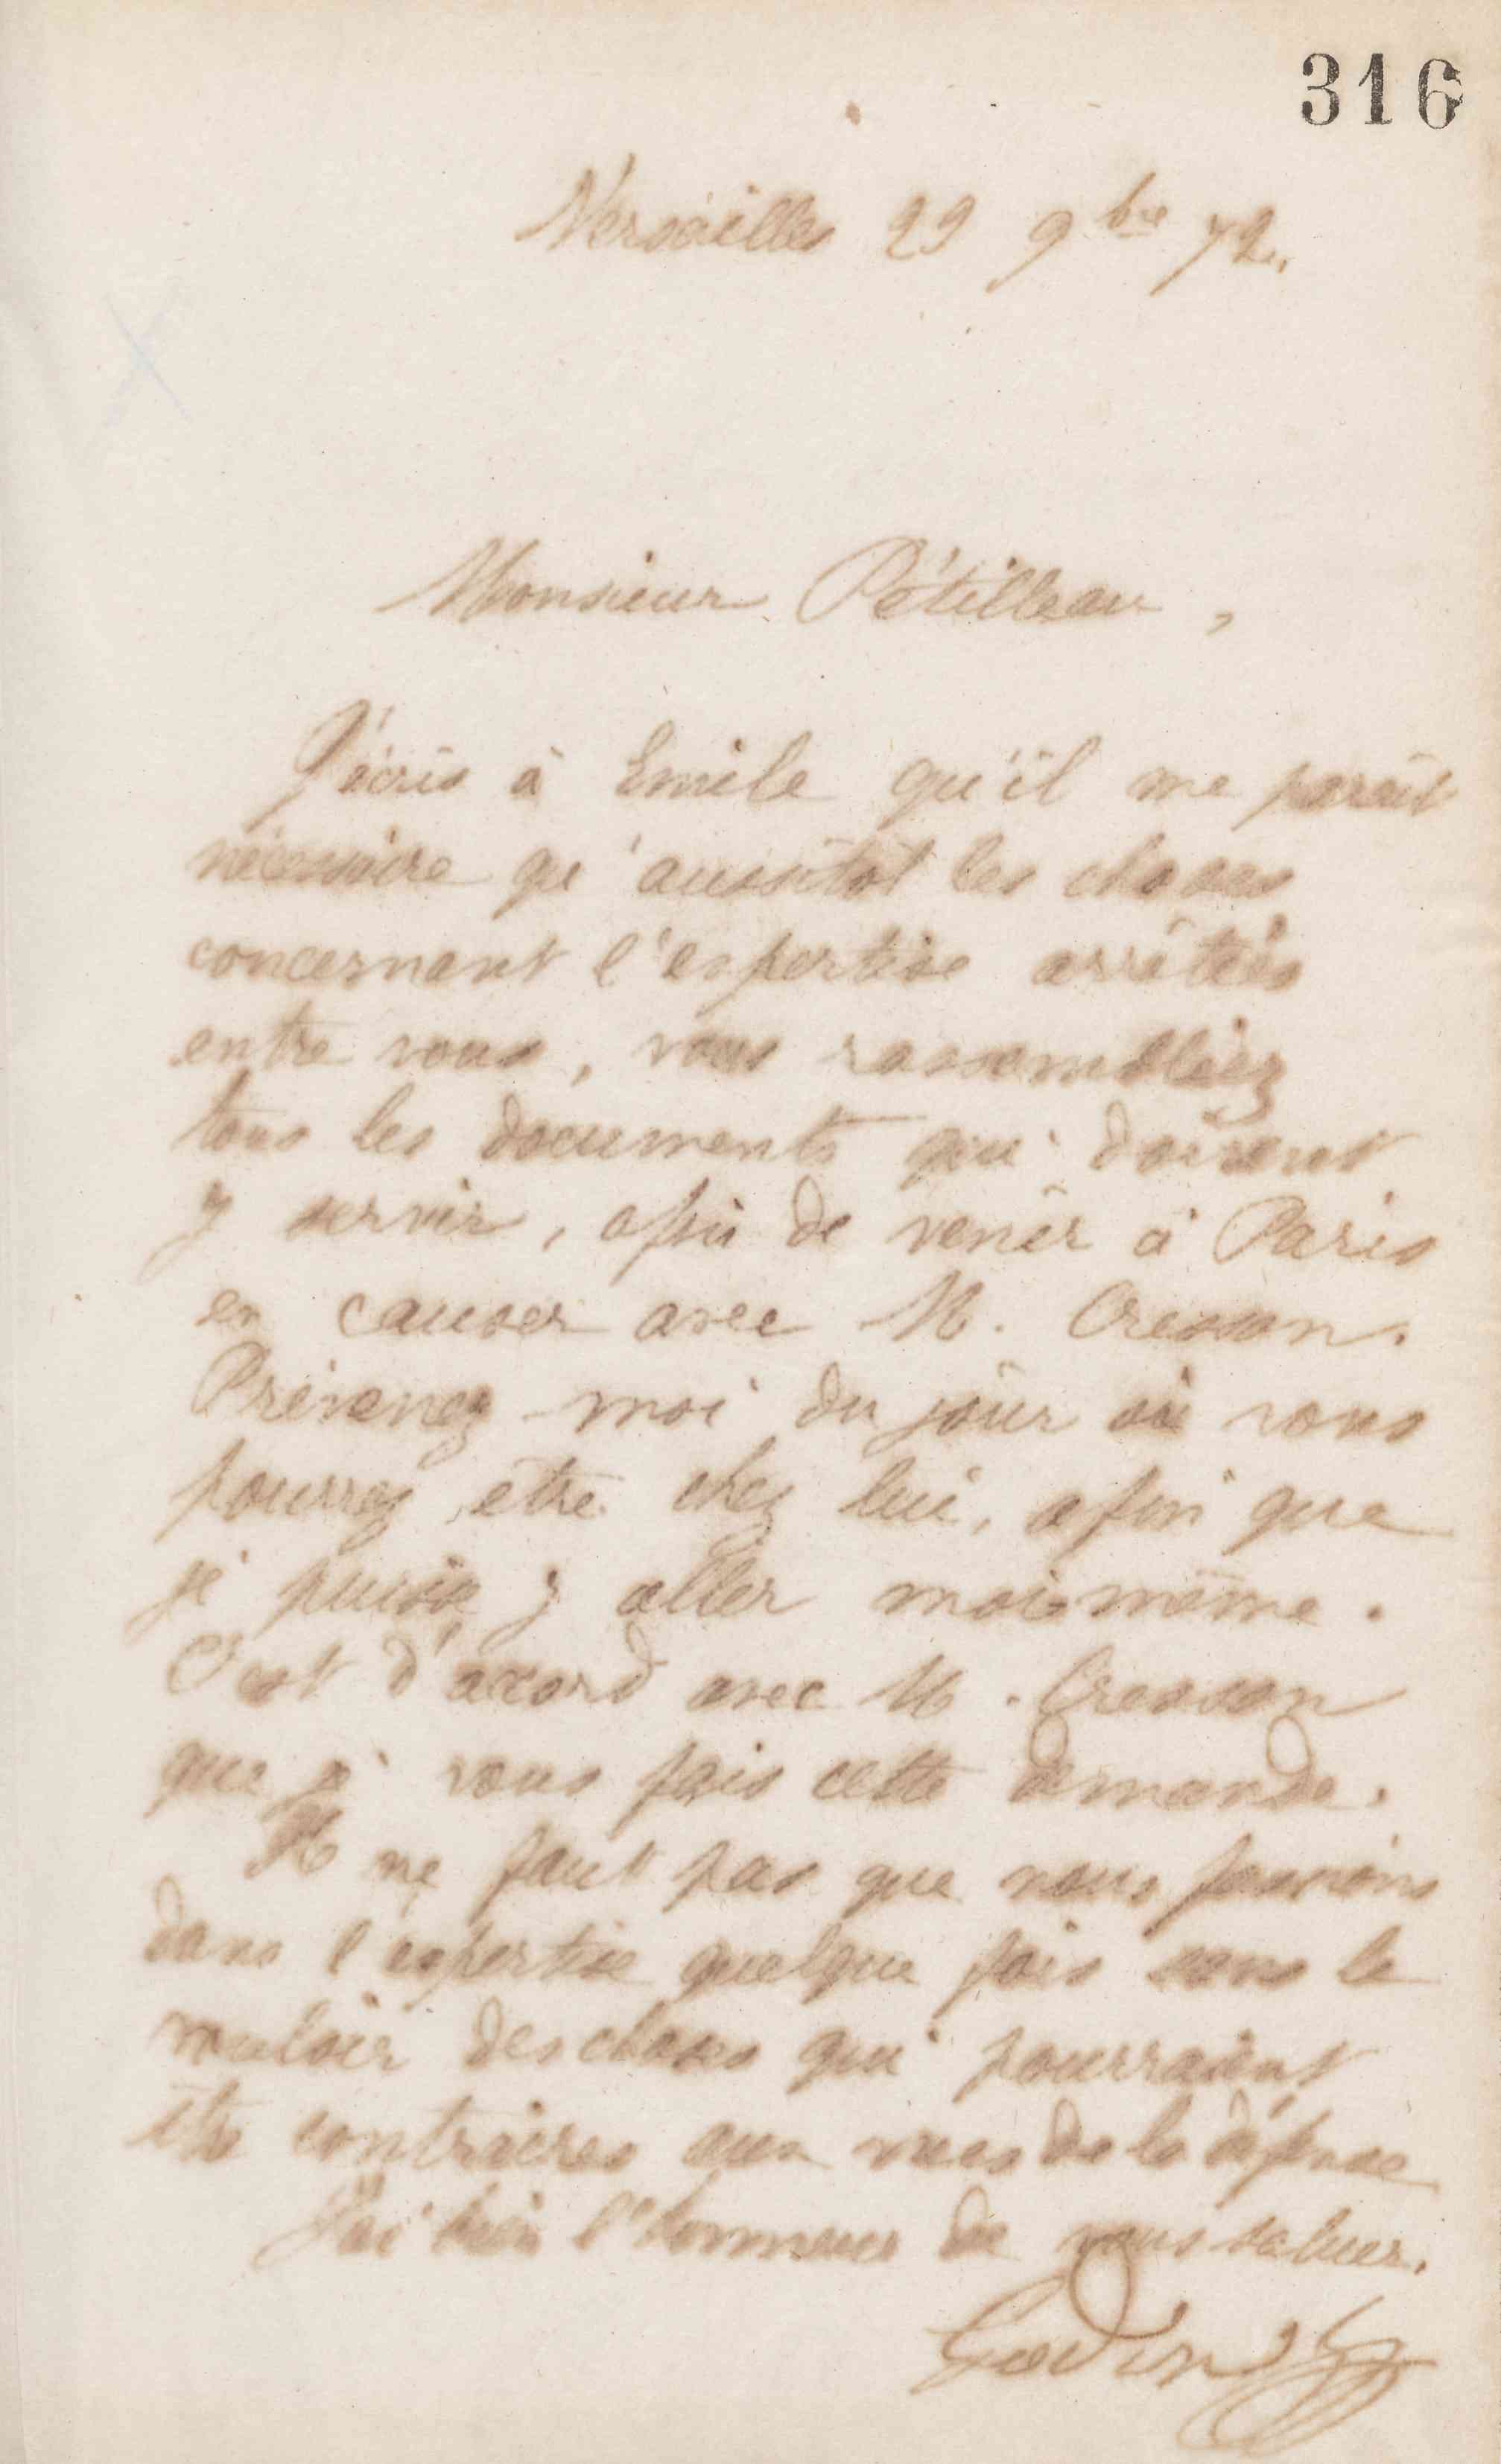 316
Versailles 29 9bre 72.
Monsieur Pétilleau,
J'écris à Emile qu'il me paraît
nécessaire qu'aussitôt les choses
concernant l'expertise arrêtées
entre vous, vous rassembliez
tous les documents qui doivent
y servir, afin de venir à Paris
en causer avec M. Cresson.
Prévenez-moi du jour où vous
pourrez être chez lui, afin que
je puisse y aller moi même.
C'est d'accord avec M. Cresson
que je vous fais cette demande.
Il ne faut pas que nous fassions
dans l'expertise quelque fois sans le
vouloir des choses qui pourraient
être contraires aux vues de la défense
J'ai bien l'honneur de vous saluer.
Godin